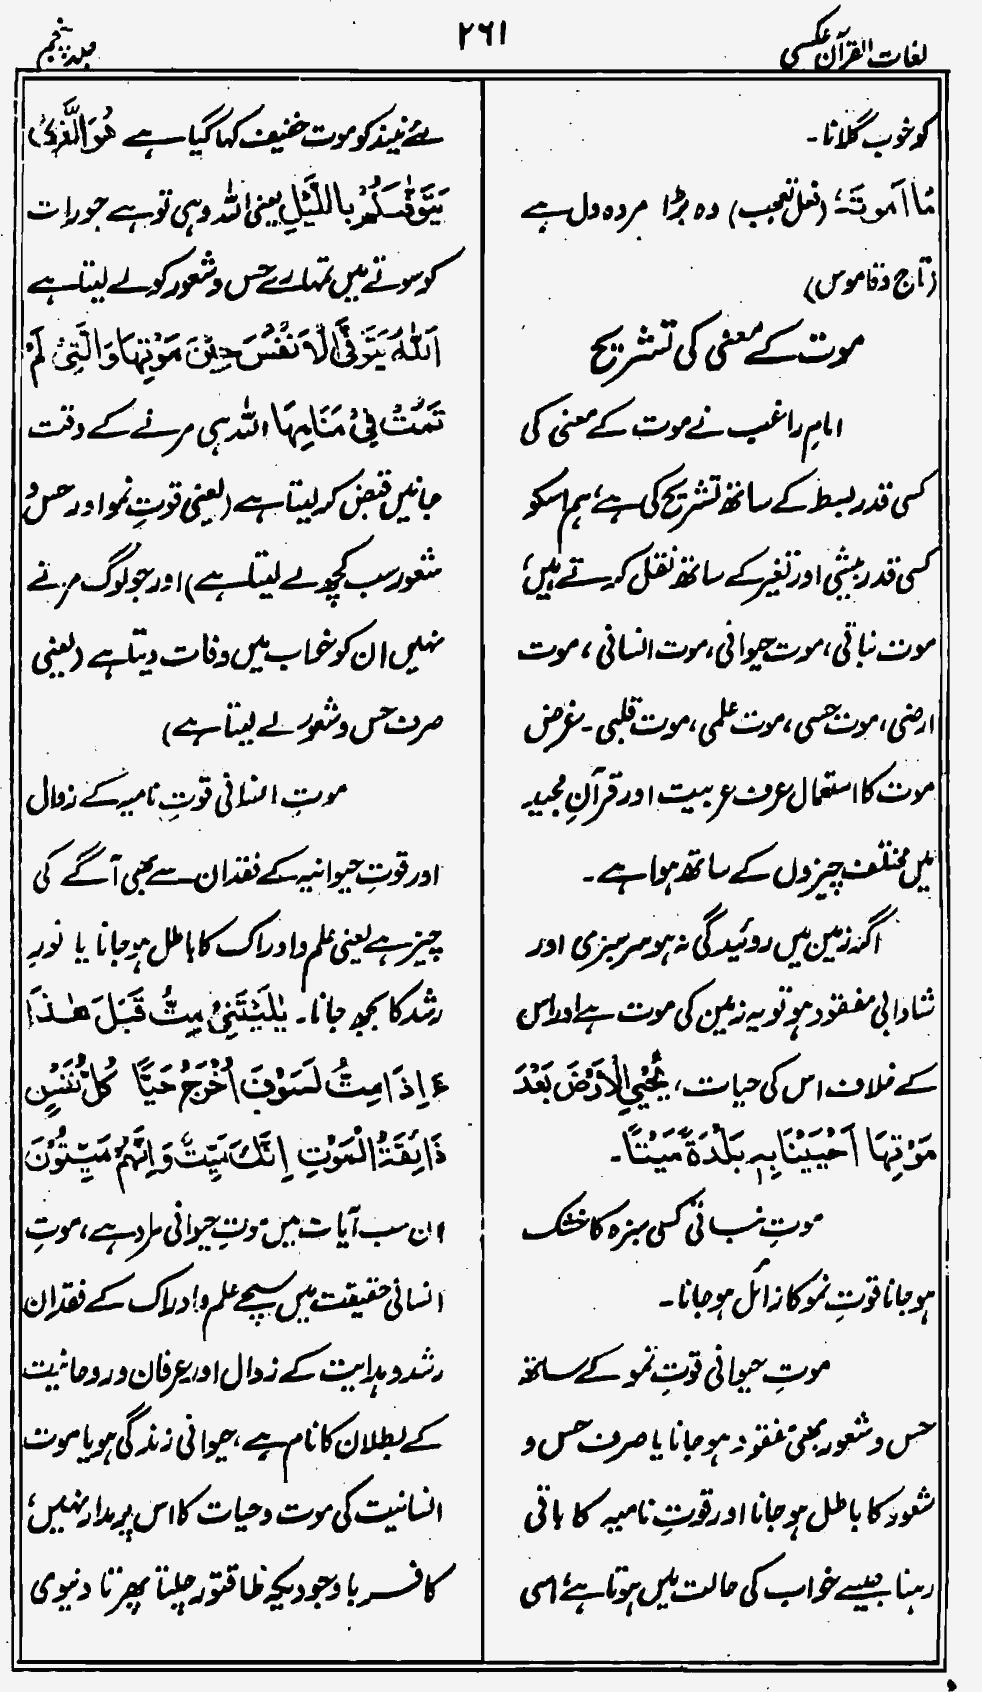 لغات القرآن عکسی
۲۶۱
جلد پنجم
کو خوب گلانا۔
مَا اَمْوَتَہٗ (فعل تعجب) وہ بڑا مردہ دل ہے
(تاج وقاموس)
موت کے معنی کی تشریح
امام راغب نے موت کے معنی کی
کسی قدر بسط کے ساتھ تشریح کی ہے، ہم اسکو
کسی قدر بیشی اور تغیر کے ساتھ نقل کرتے ہیں،
موت نباتی، موت حیوانی، موت انسانی، موت
ارضی، موت حسی، موت علمی، موت قلبی۔ غرض
موت کا استعمال عرف عربیت اور قرآنِ مجید
میں مختلف چیزوں کے ساتھ ہوا ہے۔
اگر زمین میں روئیدگی نہ ہو سرسبزی اور
شادابی مفقود ہو تو یہ زمین کی موت ہے اور اس
کے خلاف اس کی حیات، یُحْیِي الْاَرْضَ بَعْدَ
مَوْتِهَا اَحْیَیْنَا بِهٖ بَلْدَةً مَیْتًا۔
موتِ نباتی کسی سبزہ کا خشک
ہوجانا قوتِ نمو کا زائل ہوجانا۔
موتِ حیوانی قوتِ نمو کے ساتھ
حس و شعور بھی مفقود ہوجانا یا صرف حس و
شعور کا باطل ہوجانا اور قوتِ نامیہ کا باقی
رہنا جیسے خواب کی حالت میں ہوتا ہے اسی
لئے نیند کو موت خفیف کہا گیا ہے هُوَ الَّذِيْ
یَتَوَفّٰىكُمْ بِالَّیْلِ یعنی اللہ وہی تو ہے جو رات
کو سوتے میں تمہارے حس و شعور کو لے لیتا ہے
اَللّٰهُ یَتَوَفَّى الْاَنْفُسَ حِیْنَ مَوْتِهَا وَ الَّتِيْ لَمْ
تَمُتْ فِيْ مَنَامِهَا اللہ ہی مرنے کے وقت
جانیں قبض کرلیتا ہے (یعنی قوتِ نمو اور حس و
شعور سب کچھ لے لیتا ہے) اور جو لوگ مرنے
نہیں ان کو خواب میں وفات دیتا ہے (یعنی
صرف حس و شعور لے لیتا ہے)
موتِ انسانی قوتِ نامیہ کے زوال
اور قوتِ حیوانیہ کے فقدان سے بھی آگے کی
چیز ہے یعنی علم و ادراک کا باطل ہوجانا یا نورِ
رشد کا بجھ جانا۔ یٰلَیْتَنِيْ مِتُّ قَبْلَ هٰذَا
ءَاِذَا مِتُّ لَسَوْفَ اُخْرَجُ حَیًّا كُلُّ نَفْسٍ
ذَآئِقَةُ الْمَوْتِ اِنَّكَ مَیِّتٌ وَّ اِنَّهُمْ مَّیِّتُوْنَ
ان سب آیات میں موتِ حیوانی مراد ہے، موتِ
انسانی حقیقت میں سچے علم و ادراک کے فقدان
رشد و ہدایت کے زوال اور عرفان و روحانیت
کے بطلان کا نام ہے، حیوانی زندگی ہو یا موت
انسانیت کی موت و حیات کا اس پر مدار نہیں،
کافر باوجودیکہ طاقتور چلتا پھرتا دنیوی